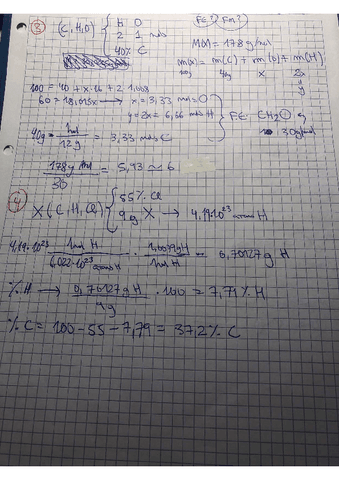 ③ (C,H,O) { H O FE? Fm?
2 1 mols M(X) = 178 g/mol
40% C m(x) = m(C) + m(O) + m(H)
100g 40g x 2x
100 = 40 + x·16 + 2·1,008
60 = 18,015x → x = 3,33 mols O
y = 2x = 6,66 mols H } FE: CH₂O
40g · mol/12g = 3,33 mols C 30g/mol
178g/mol / 30 = 5,93 ≈ 6
④ X (C, H, Cl) { 55% Cl
9g X → 4,19·10²³ atoms H
4,19·10²³ · 1mol H / 6,022·10²³ atoms H · 1,0079gH / 1mol H = 0,70127g H
% H → 0,70127g H / 9g · 100 = 7,79% H
% C = 100 - 55 - 7,79 = 37,2% C